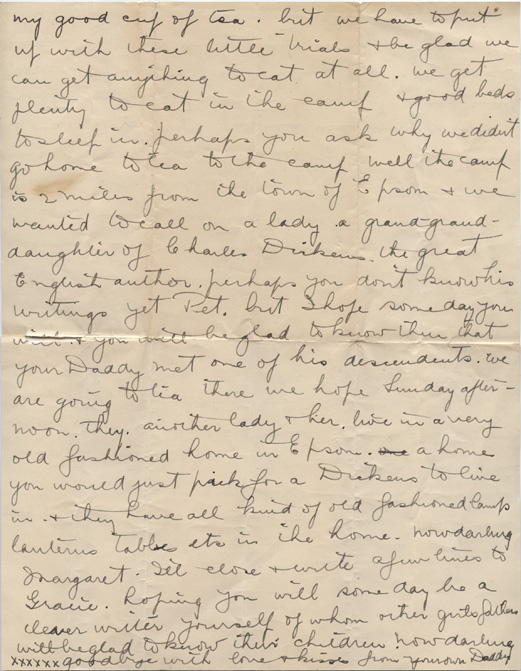 my good cup of tea. but we have to put
up with these little trials + be glad we
can get anything to eat at all. we get
plenty to eat in the camp + good beds
to sleep in. perhaps you ask why we didn't
go home to tea to the camp well the camp
is 2 miles from the town of Epsom + we
wanted to call on a lady a grand-grand-
daughter of Charles Dickens. the great
English author. perhaps you don't know his
writings yet Pet. but I hope some day you
will. + you will be glad to know then that
your Daddy met one of his descendents. we
are going to tea there we hope Sunday after-
noon. they. another lady + her. live in a very
old fashioned home in Epsom. a home
you would just pick for a Dickens to live
in. + they have all kind of old fashioned lamps
lanterns tables ets in the home. now darling
Margaret. I'll close + write a few lines to
Gracie. hoping you will some day be a
clever writer yourself of whom other girls fathers
will be glad to know their children. now darling
xxxxxx goodbye with love + kisses from your own Daddy